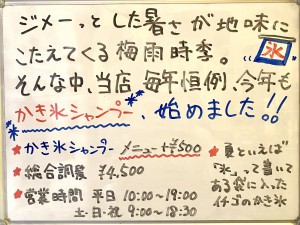 ジメーっとした暑さが地味に
こたえてくる梅雨時季。
氷
そんな中、当店、毎年恒例、今年も
かき氷シャンプー、始めました!!
★かき氷シャンプー メニュー+¥500
★総合調髪 ¥4,500
★営業時間 平日 10:00〜19:00
土・日・祝 9:00〜18:30
★夏といえば
「氷」って書いて
ある袋に入った
イチゴのかき氷